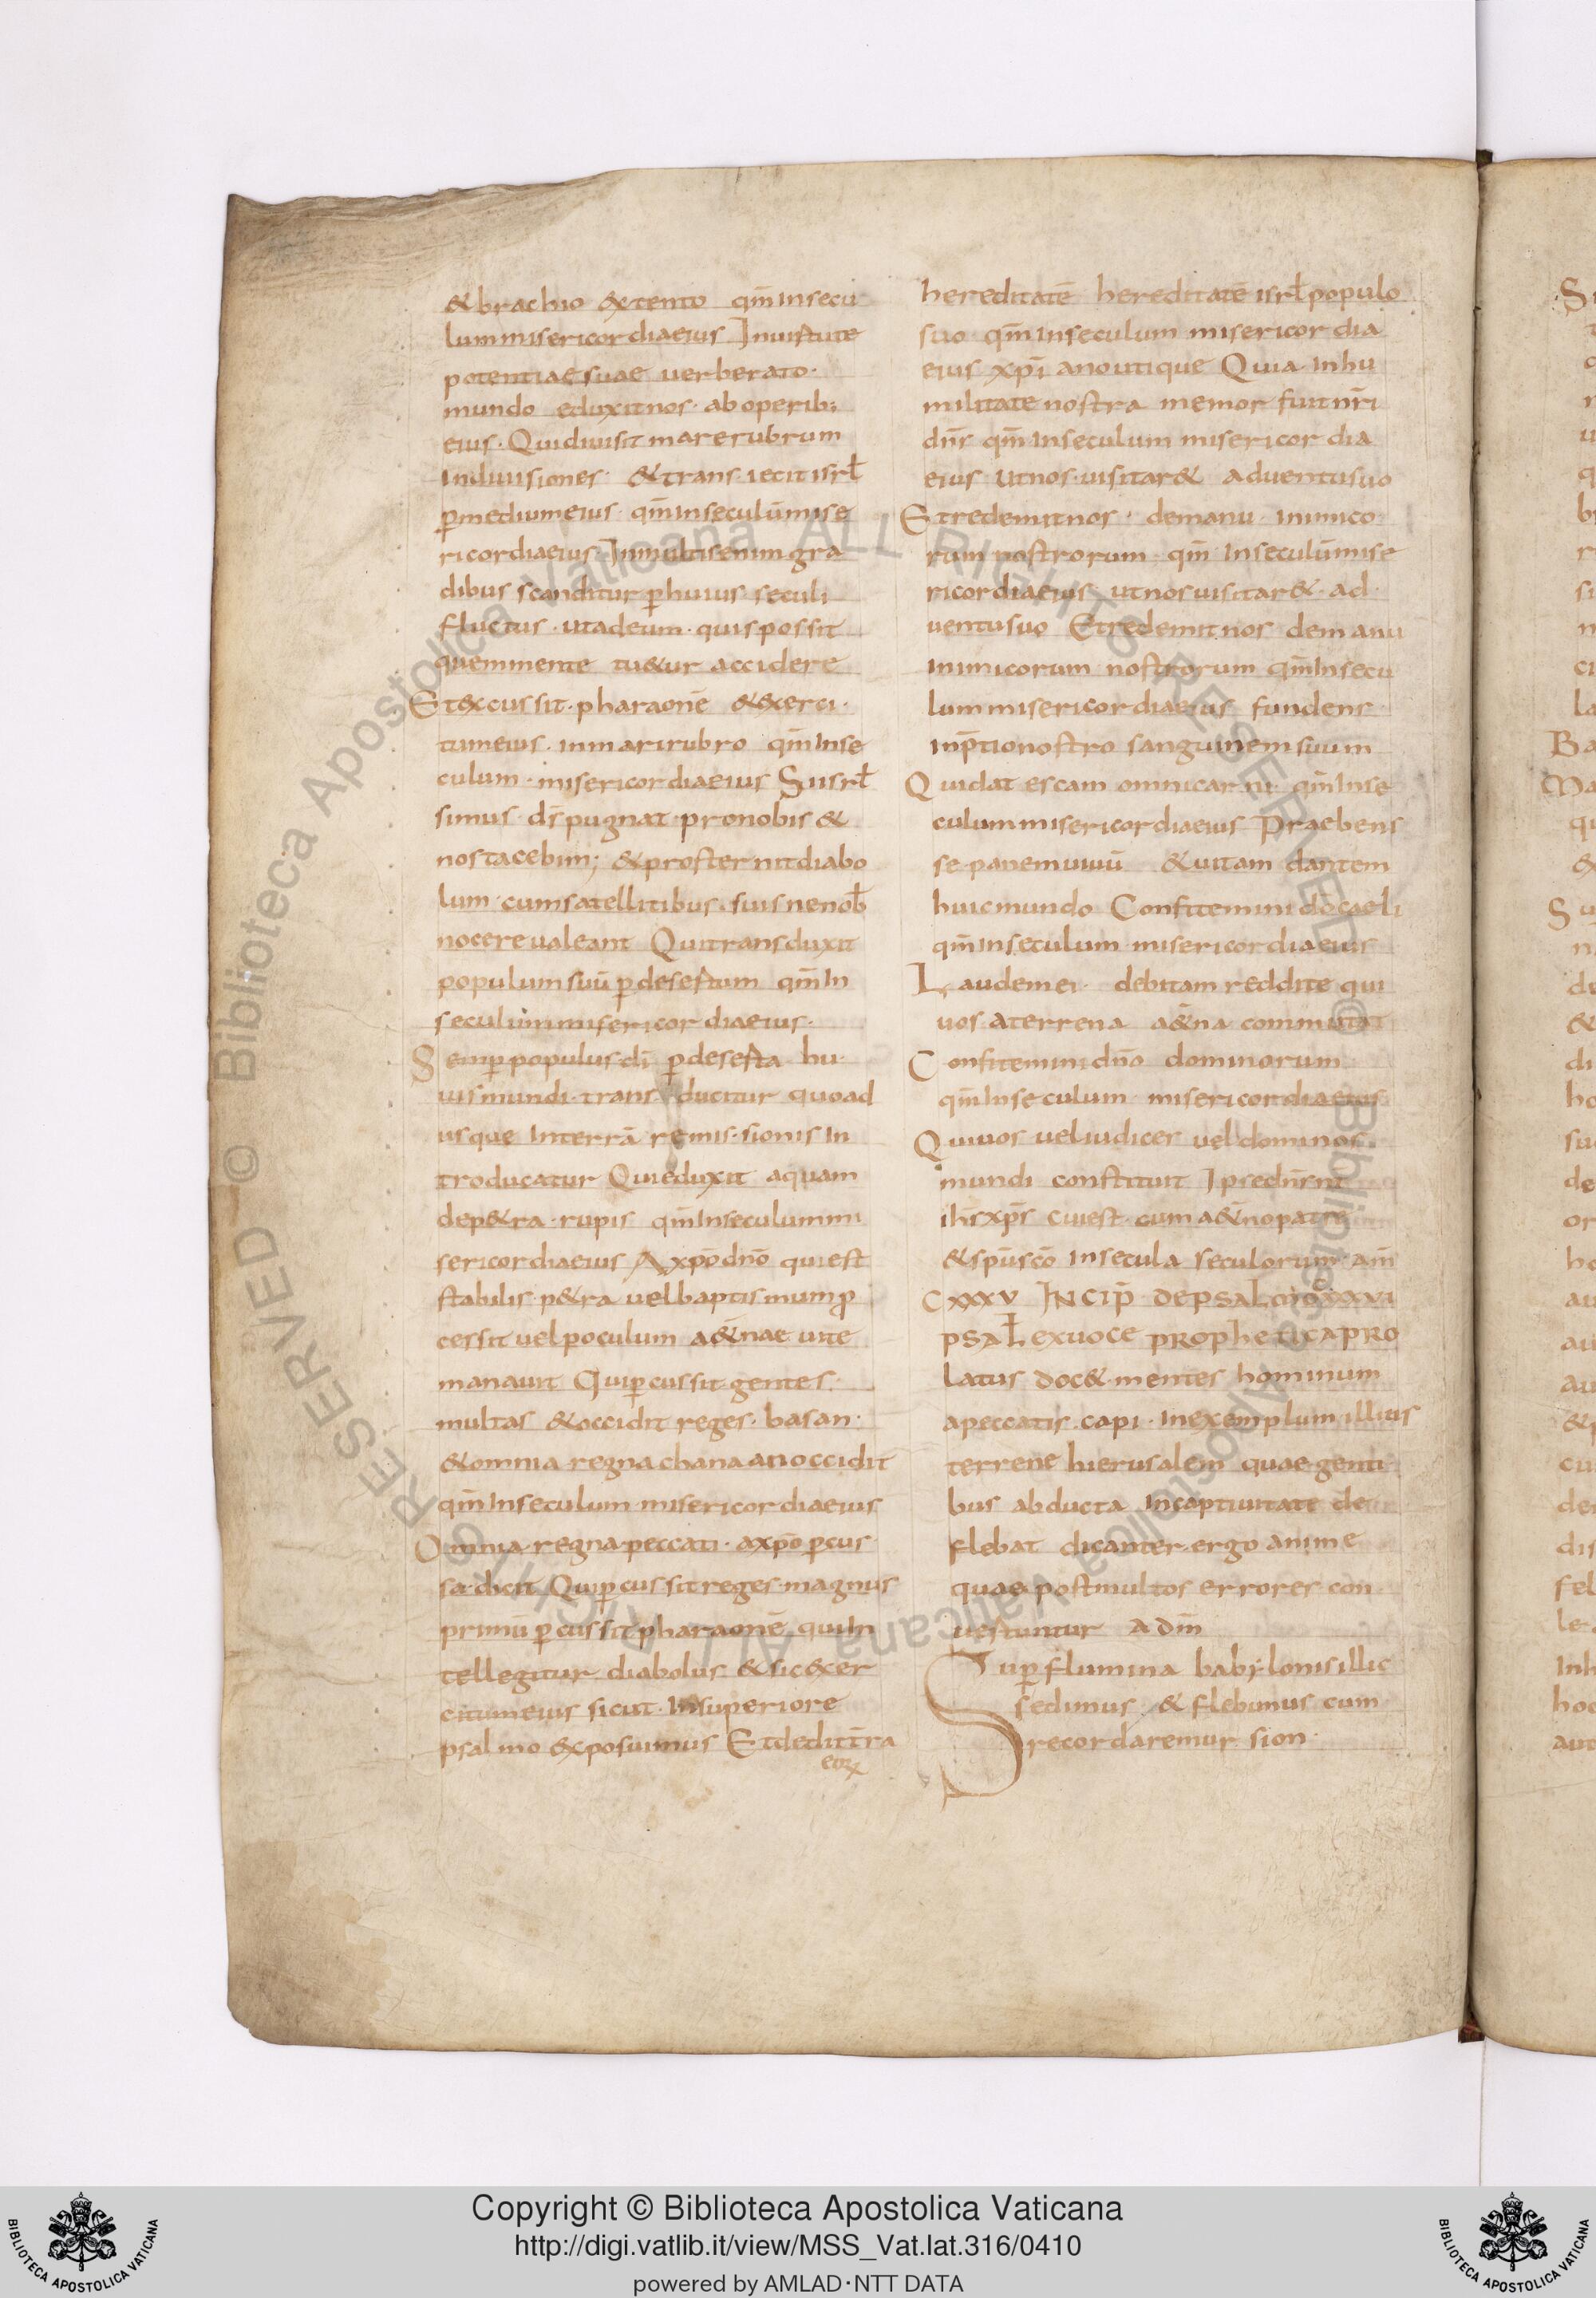 & brachio extento qm̄ in secu
lum misericordia eius In uirtute
potentiae suae uerberato·
mundo eduxit nos· ab operib;
eius· Qui diuisit mare rubrum
in diuisiones· & trans iecit isrł
p̄ medium eius· qm̄ in seculū mise
ricordia eius· In multis enim gra
dibus scanditur p̄ huius seculi
fluctus· ut ad eum· quis possit
quem mente tu&ur accidere
Et excussit· pharaonē & exerci·
tum eius· in mari rubro qm̄ in se
culum· misericordia eius Si isrł
simus· ds̄ pugnat· pro nobis &
nos tacebim; & prosternit diabo
lum· cum satellitibus· suis ne nob̄
nocere ualeant Qui transduxit
populum suū p̄ desertum qm̄ in
seculum misericordia eius·
Semp̄ populus dī p̄ deserta hu·
uis mundi· trans ducitur quoad
usque in terrā remis·sionis in
troducatur Qui eduxit aquam
de p&ra· rupis qm̄ in seculum mi
sericordia eius A xp̄o dn̄o qui est
stabilis· p&ra uel baptismum p̄
cessit uel poculum a&̄nae uite
manauit Qui p̄cussit gentes·
multas & occidit reges· basan·
& omnia regna chanaan occidit
qm̄ in seculum misericordia eius
Omnia regna peccati· a xp̄o p̄cus
sa dicit Qui p̄cussit reges· magnus
primū p̄cussit pharaonē qui in
tellegitur diabolus & sic exer
citum eius sicut· in superiore
psalmo exposuimus Et dedit tr̄a
eorꝝ
hereditatē hereditatē isrł populo
suo· qm̄ in seculum misericordia
eius xp̄iano utique Quia in hu
militate nostra memor fuit nr̄i
dn̄s qm̄ in seculum misericordia
eius ut nos· uisitar& aduentu suo
Et redemit nos· de manu inimico
rum nostrorum qm̄ in seculū mise
ricordia eius ut nos uisitar& ad·
uentu suo Et redemit nos de manu
inimicorum nostrorum qm̄ in secu
lum misericordia eius fundens·
in p̄tio nostro sanguinem suum
Qui dat escam omni carni· qm̄ in se
culum misericordia eius Praebens
se panem uiuū & uitam dantem
huic mundo Confitemini do caeli
qm̄ in seculum misericordia eius
Laudem ei· debitam reddite qui
uos· a terrena a&̄na commutat
Confitemini dn̄o dominorum
qm̄ in seculum misericordia eius
Qui uos uel iudices uel dominos
mundi constituit Ipse dn̄s nr̄
ih̄s xp̄s cui est· cum a&̄no patre
& sp̄u sc̄o in secula seculorum· am̄
CXXXV INCIP̄ DE PSALMO CXXXVI
PSAŁ EX UOCE PROPHETICA PRO
latus doc& mentes hominum
a peccatis· capi· in exemplum illius
terrene hierusalem quae genti
bus abducta in captiuitate de
flebat dicanter ergo anime
quae post multos errores con
uertuntur ad dm̄
Sup̄ flumina babylonis illic
sedimus· & flebimus cum
recordaremur sion·
Copyright © Biblioteca Apostolica Vaticana
http://digi.vatlib.it/view/MSS_Vat.lat.316/0410
powered by AMLAD·NTT DATA